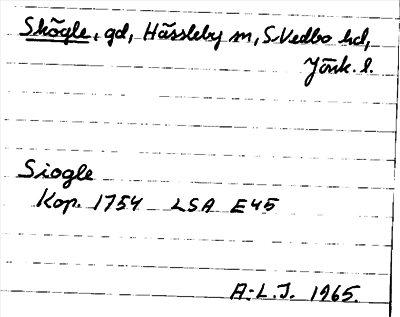 Skögle, gd, Hässleby sn, S.Vedbo hd,
Jönk. l.
Siogle
Kop. 1754 LSA E45
A.-L.J. 1965.